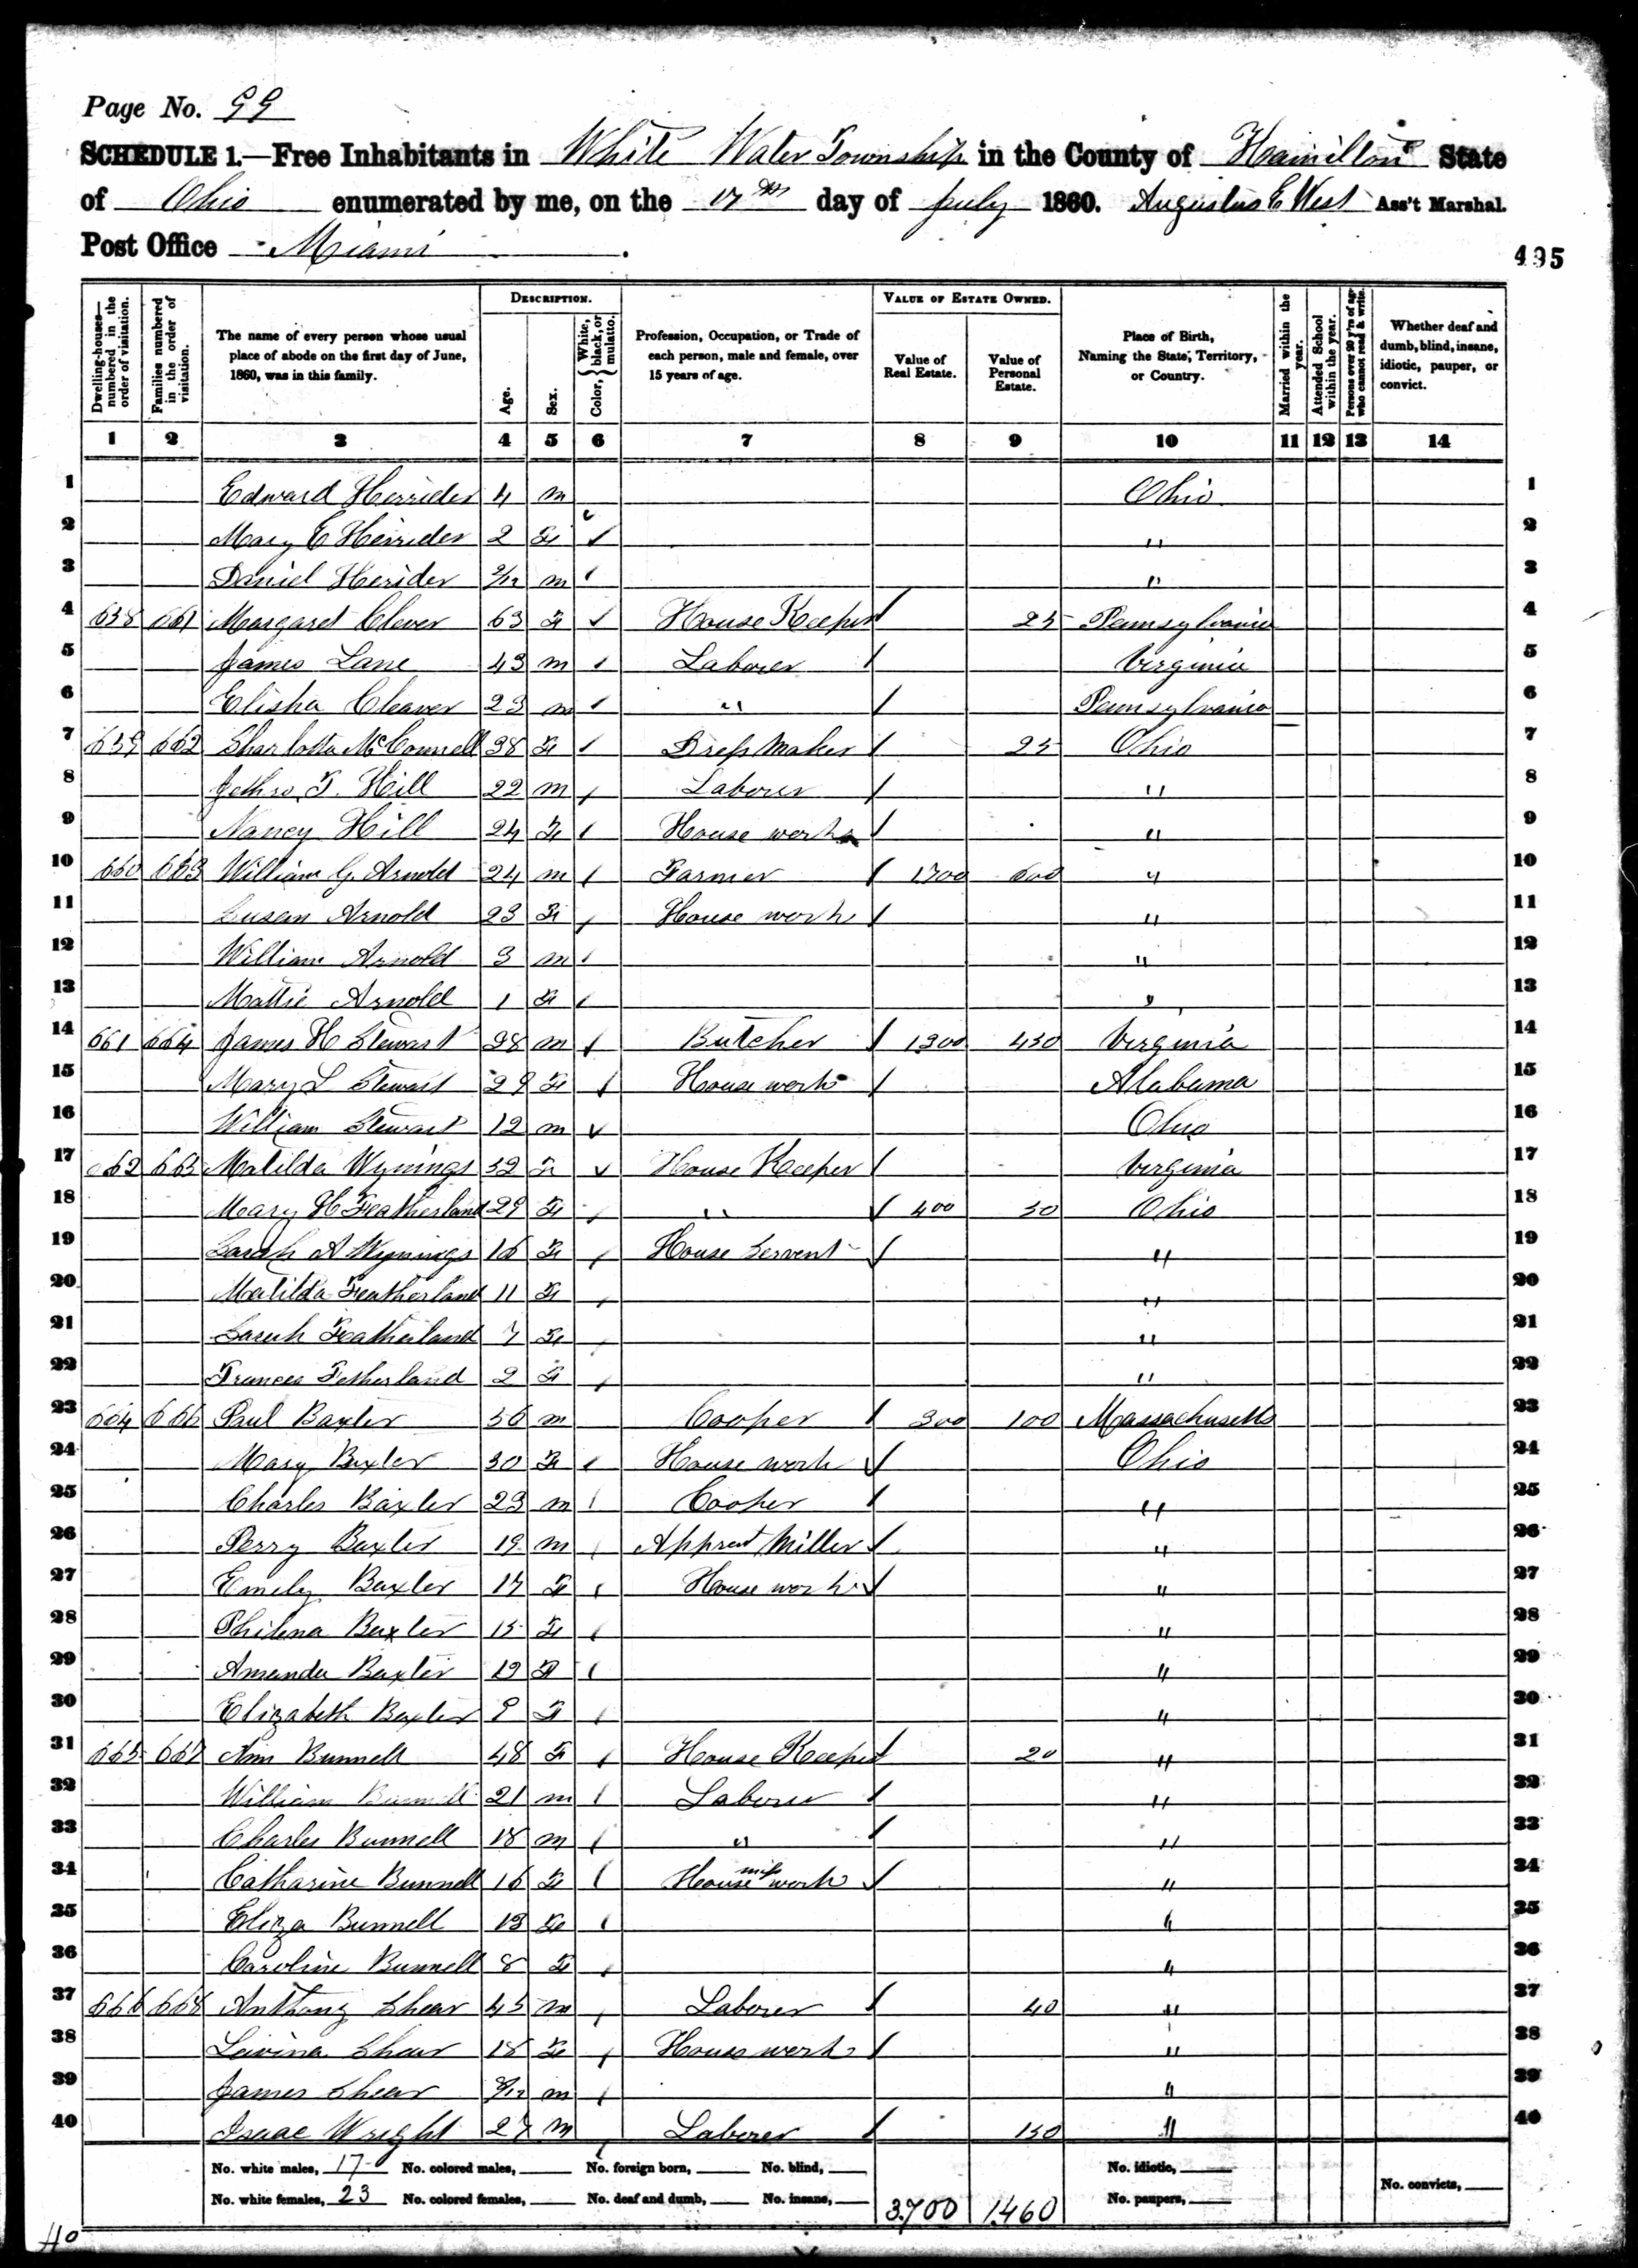 Page No. 99
SCHEDULE 1.—Free Inhabitants in White Water Township in the County of Hamilton State
of Ohio enumerated by me, on the 17th day of July 1860. Augustus E West Ass't Marshal.
Post Office Miami.
495
Dwelling-houses—numbered in the order of visitation.
Families numbered in the order of visitation.
The name of every person whose usual place of abode on the first day of June, 1860, was in this family.
DESCRIPTION.
Age.
Sex.
Color, White, black, or mulatto.
Profession, Occupation, or Trade of each person, male and female, over 15 years of age.
VALUE OF ESTATE OWNED.
Value of Real Estate.
Value of Personal Estate.
Place of Birth, Naming the State, Territory, or Country.
Married within the year.
Attended School within the year.
Persons over 20 y'rs of age who cannot read & write.
Whether deaf and dumb, blind, insane, idiotic, pauper, or convict.
1 2 3 4 5 6 7 8 9 10 11 12 13 14
1 Edward Herrider 4 m Ohio 1
2 Mary E Heirider 2 F " 2
3 Daniel Herider m " 3
4 658 661 Margaret Clever 63 F House Keeper 25 Pennsylvania 4
5 James Lane 43 m Laborer Virginia 5
6 Elisha Cleaver 23 m " Pennsylvania 6
7 659 662 Sharlotta McConnell 38 F Dress Maker 25 Ohio 7
8 Jethro T. Hill 22 m Laborer " 8
9 Nancy Hill 24 F House work " 9
10 660 663 William G. Arnold 24 m Farmer 1700 600 " 10
11 Susan Arnold 23 F House work " 11
12 William Arnold 3 m " 12
13 Mattie Arnold 1 F " 13
14 661 664 James H Stewart 38 m Butcher 1300 450 Virginia 14
15 Mary L Stewart 29 F House work Alabama 15
16 William Stewart 12 m Ohio 16
17 662 665 Matilda Wynings 52 F House Keeper Virginia 17
18 Mary H Featherland 29 F " 400 50 Ohio 18
19 Sarah A Wynings 16 F House Servent " 19
20 Matilda Featherland 11 F " 20
21 Sarah Featherland 7 F " 21
22 Frances Fetherland 2 F " 22
23 664 666 Paul Baxter 56 m Cooper 300 100 Massachusetts 23
24 Mary Baxter 50 F House work Ohio 24
25 Charles Baxter 23 m Cooper " 25
26 Perry Baxter 19 m Apprent Miller " 26
27 Emely Baxter 17 F House work " 27
28 Philena Baxter 15 F " 28
29 Amanda Baxter 12 F " 29
30 Elizabeth Baxter 9 F " 30
31 665 667 Ann Bunnell 48 F House Keeper 20 " 31
32 William Bunnell 21 m Laborer " 32
33 Charles Bunnell 18 m " " 33
34 Catharine Bunnell 16 F House work " 34
35 Eliza Bunnell 13 F " 35
36 Caroline Bunnell 8 F " 36
37 666 668 Anthony Shear 45 m Laborer 40 " 37
38 Lavina Shear 18 F House work " 38
39 James Shear m " 39
40 Isaac Wright 27 m Laborer 150 " 40
No. white males, 17 No. colored males, No. foreign born, No. blind, No. idiotic,
No. white females, 23 No. colored females, No. deaf and dumb, No. insane, 3.700 1.460 No. paupers, No. convicts,
40